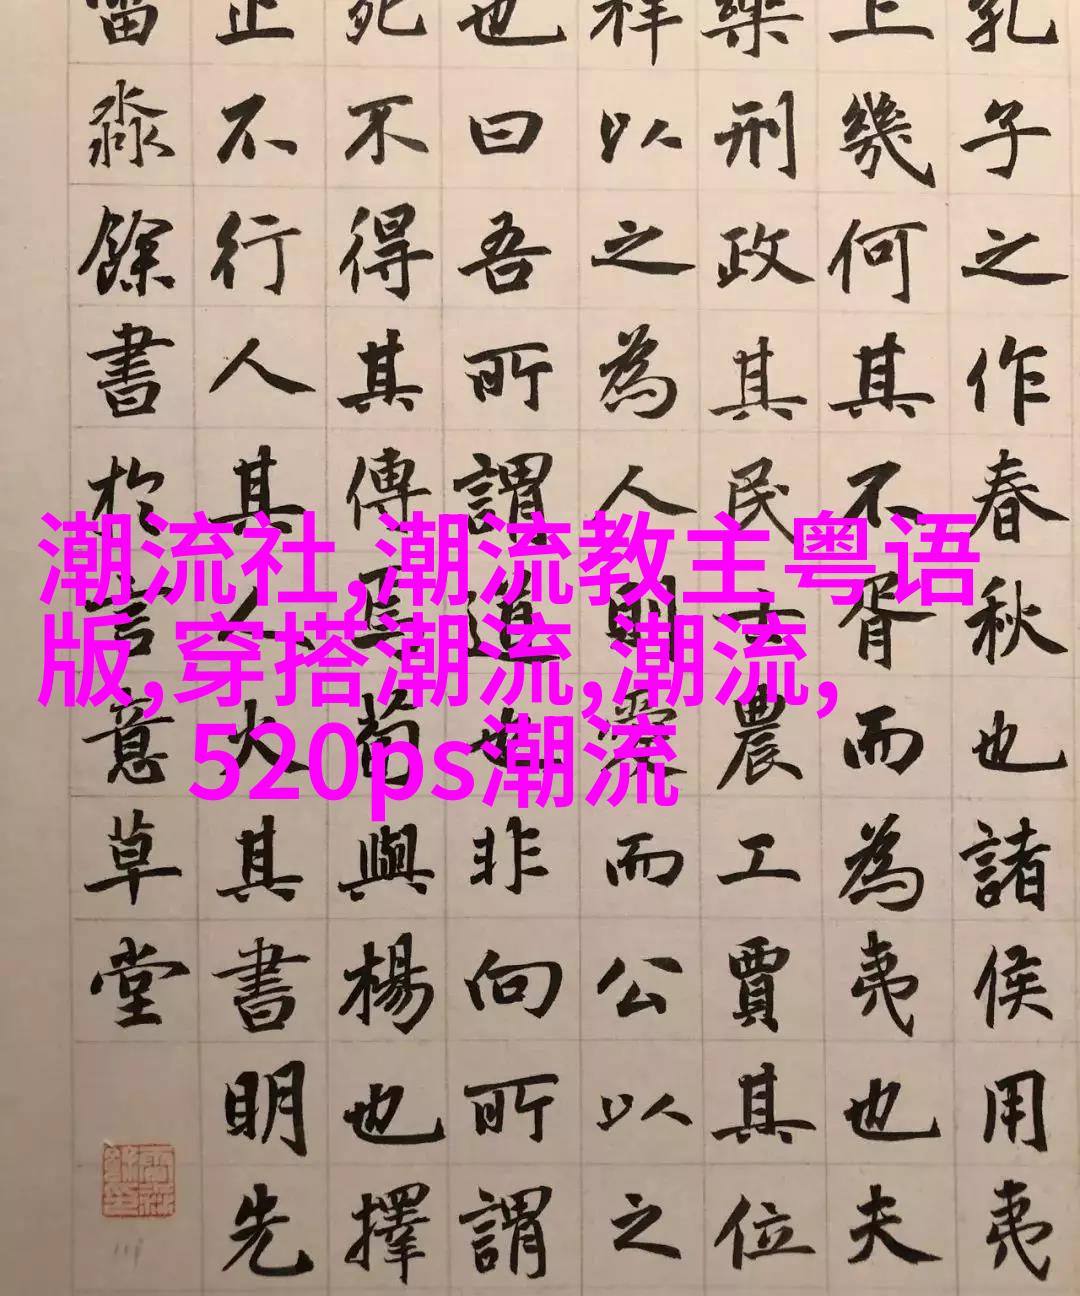 潮流社,潮流教主粤语
版,穿搭潮流,潮流,
520ps潮流
孔子之作春秋也諸侯用夷
上幾何其不胥而為夷也夫
樂刑政其民士農工賈其位
祥以之為人則愛而公以之
也曰吾所謂道也非向所謂
死不得其傳焉荀與楊也擇
止不行人其人火其書明先
淼餘書於意草堂